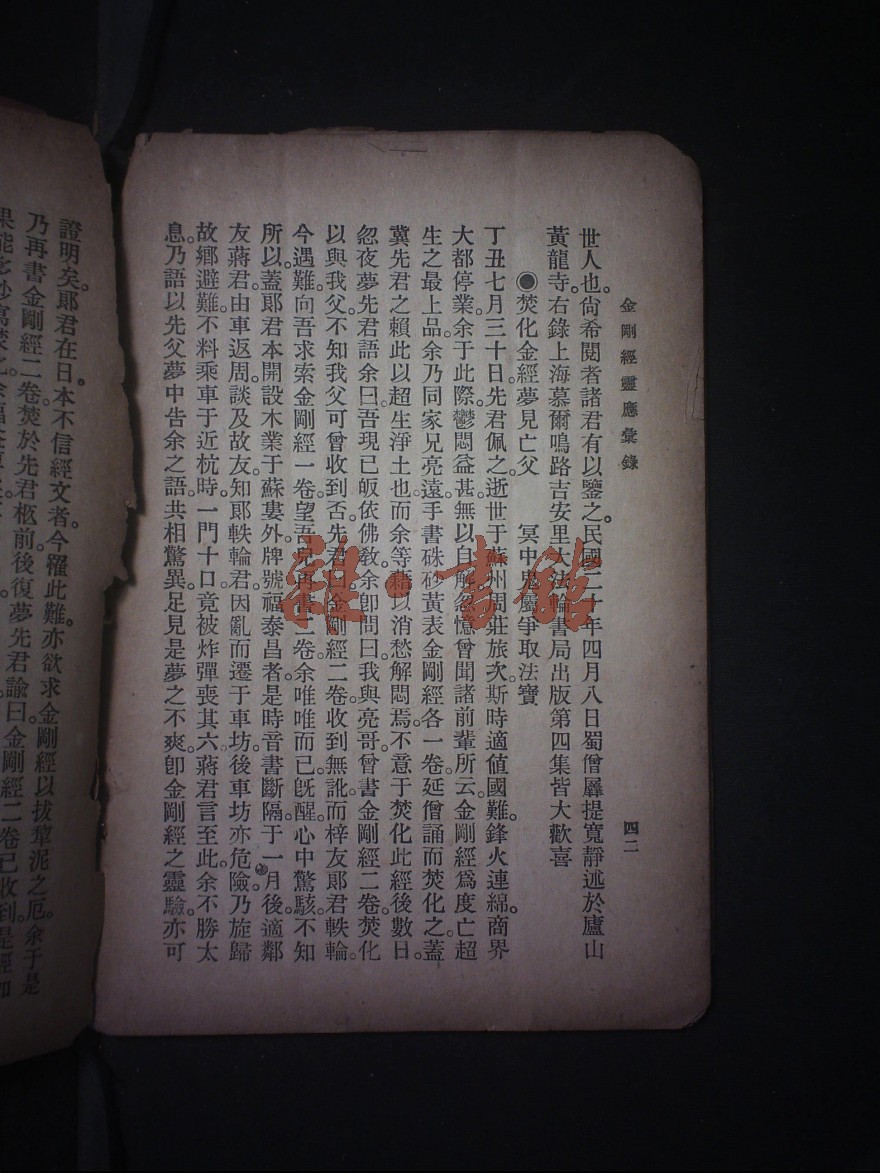 金剛經靈應彙錄
四二
世人也。尙希閱者諸君有以鑒之。民國二十年四月八日蜀僧羼提寬靜述於廬山
黃龍寺。右錄上海慕爾鳴路吉安里大法輪書局出版第四集皆大歡喜
◉焚化金經夢見亡父 冥中惡魔爭取法寶
丁丑七月三十日。先君佩之。逝世于蘇州周莊旅次。斯時適値國難。鋒火連綿。商界
大都停業。余于此際。鬱悶益甚。無以自解。忽憶曾聞諸前輩所云。金剛經爲度亡超
生之最上品。余乃同家兄亮遠。手書硃砂黃表金剛經各一卷。延僧誦而焚化之。蓋
冀先君之賴此以超生淨土也。而余等藉以消愁解悶焉。不意于焚化此經後數日。
忽夜夢先君語余曰。吾現已皈依佛敎。余卽問曰。我與亮哥曾書金剛經二卷。焚化
以與我父。不知我父可曾收到否。先君曰。金剛經二卷收到無訛。而梓友鄖君軼輪。
今遇難。向吾求索金剛經一卷。望吾兒再書二卷。余唯唯而已。旣醒。心中驚駭。不知
所以。蓋鄖君本開設木業于蘇婁外。牌號福泰昌者。是時音書斷隔。于一月後。適鄰
友蔣君。由車返周。談及故友。知鄖軼輪君。因亂而遷于車坊。後車坊亦危險。乃旋歸
故鄉避難。不料乘車于近杭時。一門十口。竟被炸彈喪其六。蔣君言至此。余不勝太
息。乃語以先父夢中告余之語。共相驚異。足見是夢之不爽。卽金剛經之靈驗。亦可
證明矣。鄖君在日。本不信經文者。今罹此難。亦欲求金剛經以拔犂泥之厄。余于是
乃再書金剛經二卷。焚於先君柩前。後復夢先君諭曰。金剛經二卷已收到。是經